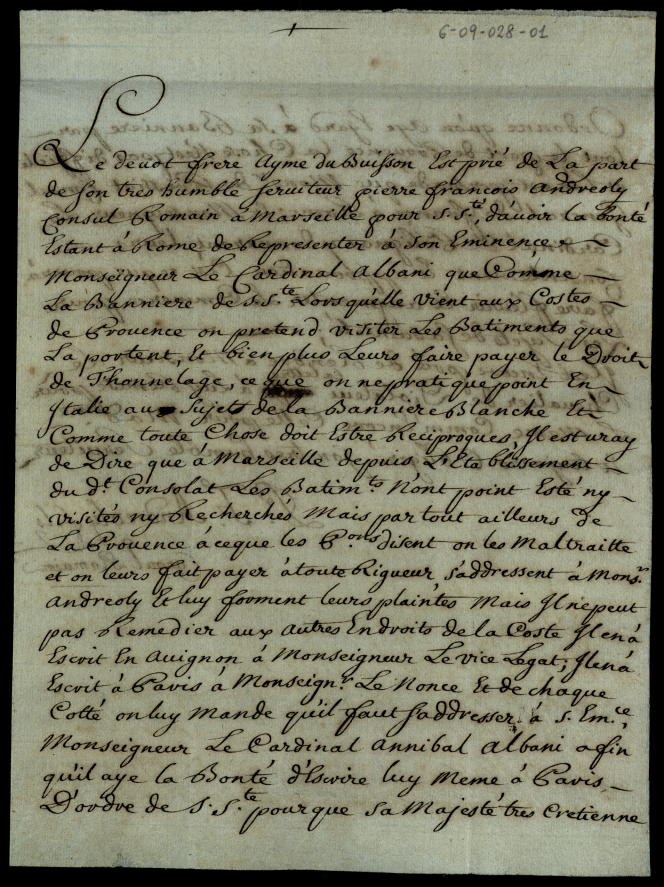 6-09-028-01
Le devot frere Ayme du Buisson Est prié de La part
de son tres humble serviteur pierre françois Andreoly
Consul Romain à Marseille pour s. s.té, d'avoir la bonté
Estant à Rome de Representer à son Eminence
Monseigneur Le Cardinal Albani que Comme
La Banniere de s. s.te Lorsqu'elle vient aux Costes
de Provence on pretend visiter Les Batiments que
La portent, Et bien plus Leurs faire payer le Droit
de Thonnelage, ce que on ne pratique point En
Italie aux sujets de la Banniere Blanche Et
Comme toute Chose doit Estre Reciproques, Il est vray
de Dire que à Marseille depuis L'Etablissement
du d.t Consolat Les Batim.ts N'ont point Esté ny
visités ny Recherchés Mais par tout ailleurs de
La Provence à ce que les P.ons disent on les Maltraitte
et on leurs fait payer à toute Rigueur s'addressent à Mons.r
Andreoly Et luy forment leurs plaintes Mais Il ne peut
pas Remedier aux autres Endroits de la Coste Il en à
Escrit En Avignon à Monseigneur Le vice Legat; Il en à
Escrit à Paris à Monseign.r Le Nonce Et de chaque
Cotté on luy Mande qu'il faut s'addresser à s. Em.ce,
Monseigneur Le Cardinal Annibal Albani afin
qu'il aye la Bonté d'Escrire luy Meme à Paris
D'ordre de s. s.te pour que sa Majesté tres Cretienne